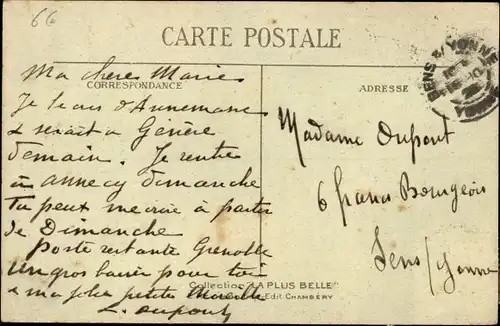 66
CARTE POSTALE
SENS S/ YONNE
YONNE
Ma chère Marie
CORRESPONDANCE
ADRESSE
Je suis d'Annemasse
& serait a Genève
demain. Je rentre
à annecy dimanche
Tu peux me à partir
de Dimanche
poste restante Grenoble
un gros baiser pour toi
& ma jolie petite
L. Dupont
Madame Dupont
6 Bourgeois
Sens/Yonne
Collection "LA PLUS BELLE"
Edit. CHAMBÉRY